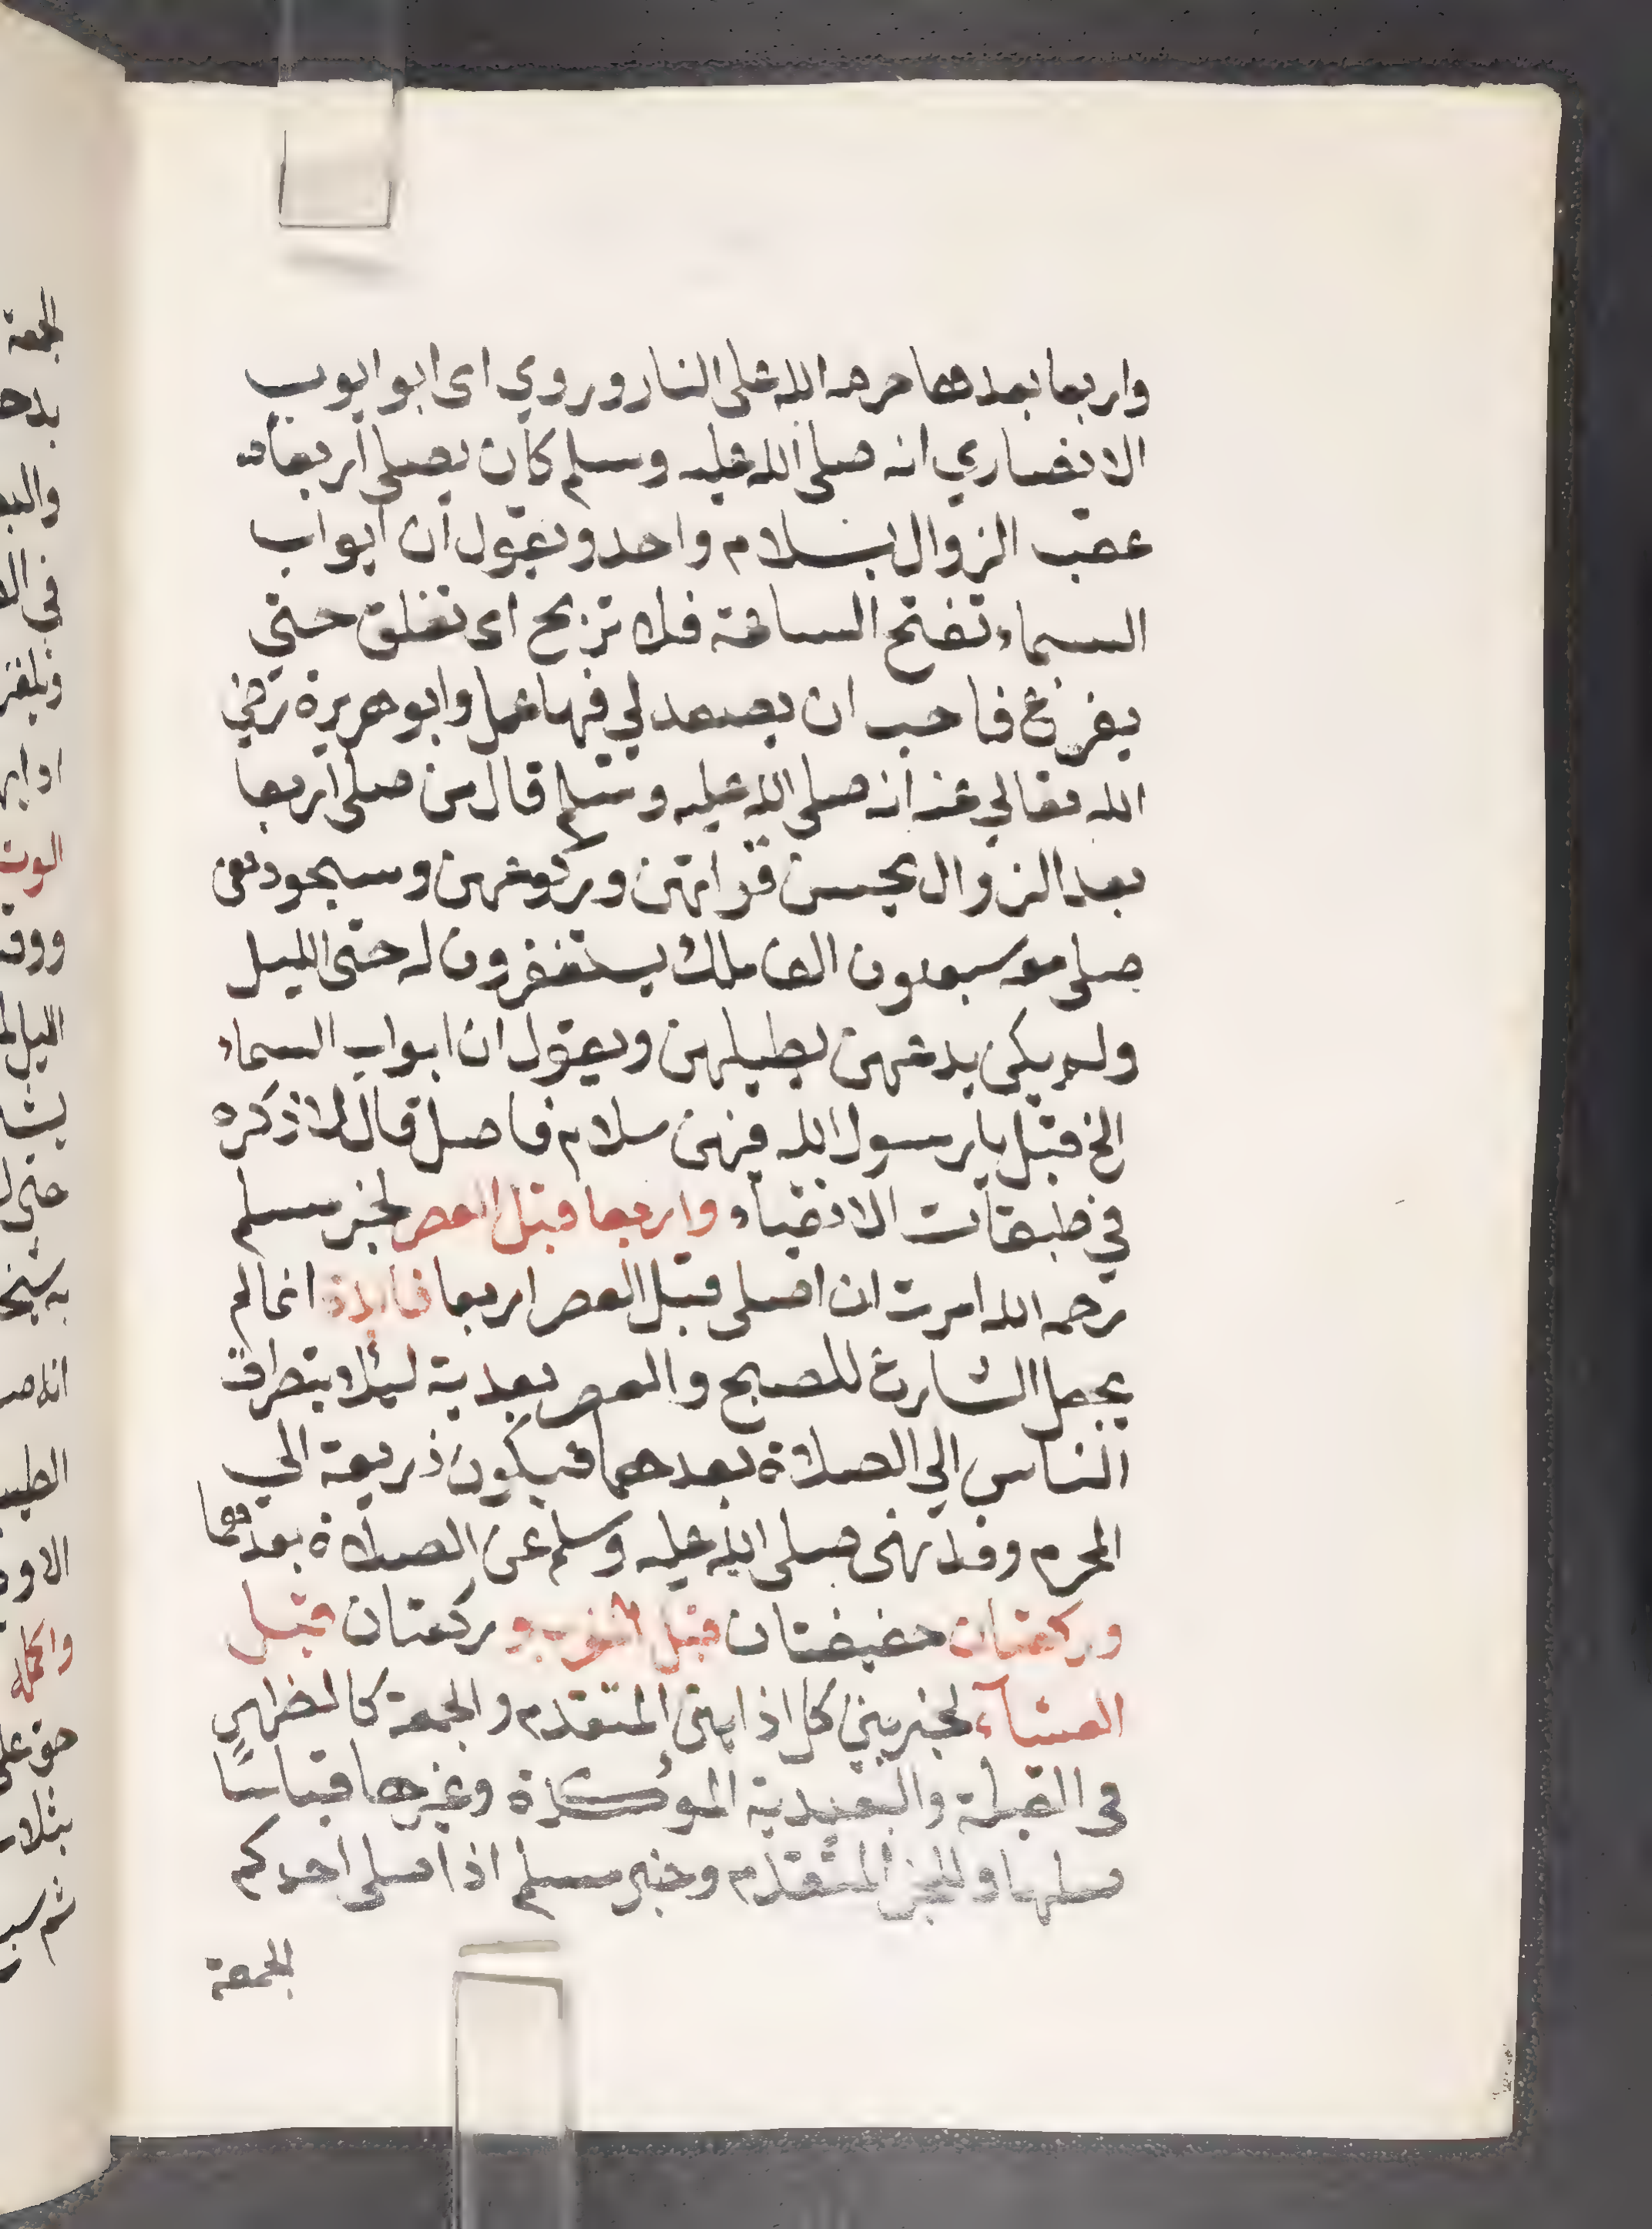 واربعا بعدها حرمه الله على النار وروي اى ابو ايوب
الانصاري انه صلى الله عليه وسلم كان يصلى اربعا
عقب الزوال بسلام واحد ويقول ان ابواب
السماء تفتح الساعة فلا ترتج اى تغلق حتي
يفرغ فاحب ان يصعد لي فيها عمل وابو هريرة رضي
الله تعالي عنه انه صلى الله عليه وسلم قال من صلى اربعا
بعد الزوال يحسن قراتهن وركوعهن وسجودهن
صلى معه سبعون الف ملك يستغفرون له حتى الليل
ولم يكن يدعهن يطيلهن ويقول ان ابواب السماء
الخ قيل يا رسول الله فيهن سلام فاصل قال لا ذكره
في طبقات الاتقياء واربعا قبل العصر لخبر مسلم
رحمه الله امرت ان اصلى قبل العصر اربعا فايدة انما لم
يجعل الشارع للصبح والعصر بعدية ليلا يتطرق
الناس الي الصلاة بعدهما فيكون ذريعة الي
المحرم وقد نهى صلى الله عليه وسلم عن الصلاة بعدهما
وركعتان خفيفتان قبل المغرب وركعتان قبل
العشاء لخبر بين كل اذانين المتقدم والجمعة كالظهر
في القبلية والبعدية الموكدة وغيرها قياسا
عليها وللخبر المتقدم وخبر مسلم اذا صلى احدكم
الجمعة